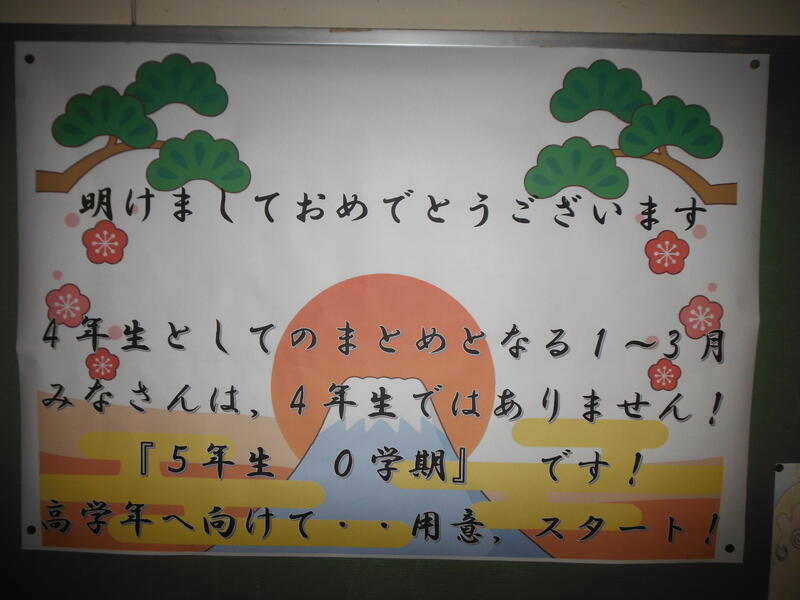 明けましておめでとうございます
4年生としてのまとめとなる1～3月
みなさんは,4年生ではありません！
『5年生　0学期』　です！
高学年へ向けて・・用意,スタート！